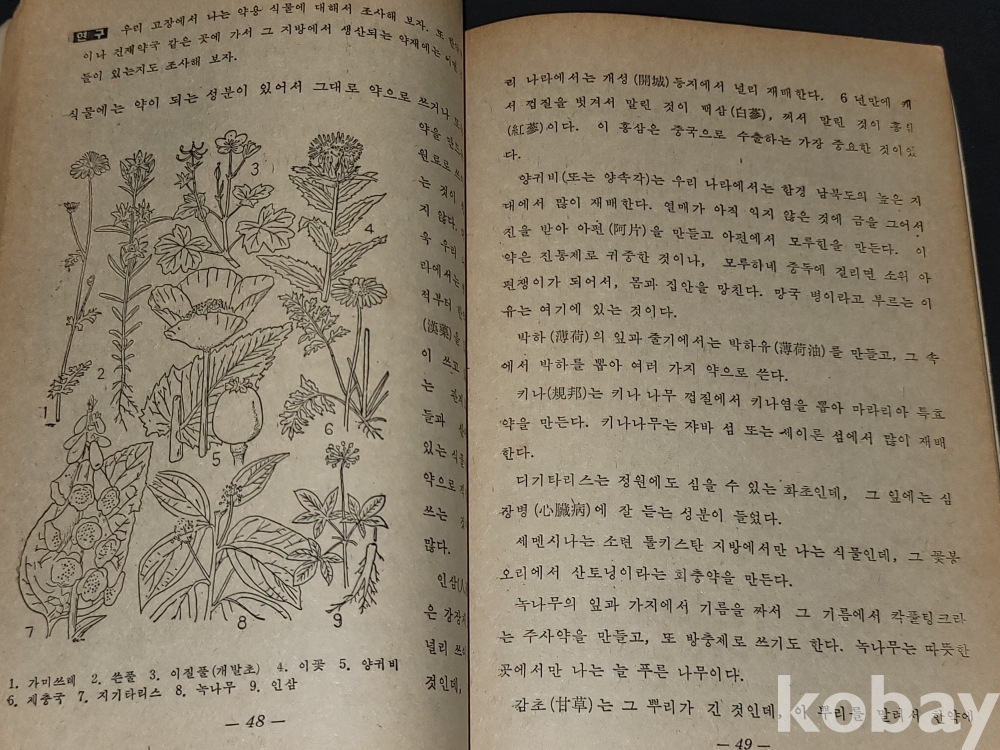 연구 우리 고장에서 나는 약용 식물에 대해서 조사해 보자. 또
이나 건재약국 같은 곳에 가서 그 지방에서 생산되는 약재에는
들이 있는지도 조사해 보자.
식물에는 약이 되는 성분이 있어서 그대로 약으로 쓰거나
약을 만드
원료로 쓰
는 것이
지 않다.
욱 우리
라에서는
적부터
(漢藥)을
이 쓰고
는
들과
있는 식물
약으로
쓰는
많다.
인삼(
은 강장
널리 쓰
것인데,
1
2
3
4
5
6
7
8
9
1. 가미쓰레 2. 쓴풀 3. 이질풀(개발초) 4. 이꽃 5. 양귀비
6. 제충국 7. 지기타리스 8. 녹나무 9. 인삼
— 48 —
리 나라에서는 개성(開城) 등지에서 널리 재배한다. 6년만에 캐
서 껍질을 벗겨서 말린 것이 백삼(白蔘), 쪄서 말린 것이 홍삼
(紅蔘)이다. 이 홍삼은 중국으로 수출하는 가장 중요한 것이었
다.
양귀비(또는 양속각)는 우리 나라에서는 함경 남북도의 높은 지
대에서 많이 재배한다. 열매가 아직 익지 않은 것에 금을 그어서
진을 받아 아편(阿片)을 만들고 아편에서 모루힌을 만든다. 이
약은 진통제로 귀중한 것이나, 모루히네 중독에 걸리면 소위 아
편쟁이가 되어서, 몸과 집안을 망친다. 망국 병이라고 부르는 이
유는 여기에 있는 것이다.
박하(薄荷)의 잎과 줄기에서는 박하유(薄荷油)를 만들고, 그 속
에서 박하를 뽑아 여러 가지 약으로 쓴다.
키나(規邦)는 키나 나무 껍질에서 키나염을 뽑아 마라리아 특효
약을 만든다. 키나나무는 쟈바 섬 또는 세이론 섬에서 많이 재배
한다.
디기타리스는 정원에도 심을 수 있는 화초인데, 그 잎에는 심
장병(心臟病)에 잘 듣는 성분이 들었다.
세멘시나는 소련 톨키스탄 지방에서만 나는 식물인데, 그 꽃봉
오리에서 산토닝이라는 회충약을 만든다.
녹나무의 잎과 가지에서 기름을 짜서 그 기름에서 칵풀팅크라
는 주사약을 만들고, 또 방충제로 쓰기도 한다. 녹나무는 따뜻한
곳에서만 나는 늘 푸른 나무이다.
감초(甘草)는 그 뿌리가 긴 것인데, 이 뿌리를 말려서 한약에
— 49 —
kobay